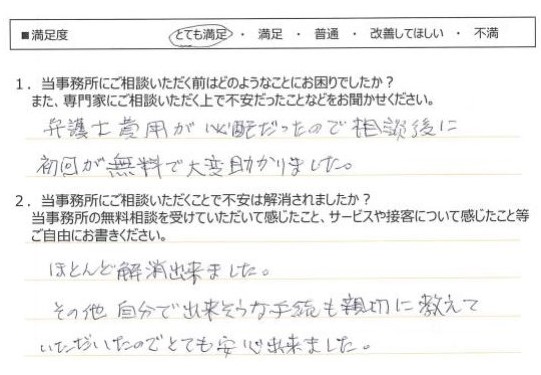 ■満足度 とても満足 ・ 満足 ・ 普通 ・ 改善してほしい ・ 不満
1．当事務所にご相談いただく前はどのようなことにお困りでしたか？
また、専門家にご相談いただく上で不安だったことなどをお聞かせください。
弁護士費用が心配だったので相談後に
初回が無料で大変助かりました。
2．当事務所にご相談いただくことで不安は解消されましたか？
当事務所の無料相談を受けていただいて感じたこと、サービスや接客について感じたこと等
ご自由にお書きください。
ほとんど解消出来ました。
その他自分で出来そうな手続も親切に教えて
いただいたのでとても安心出来ました。